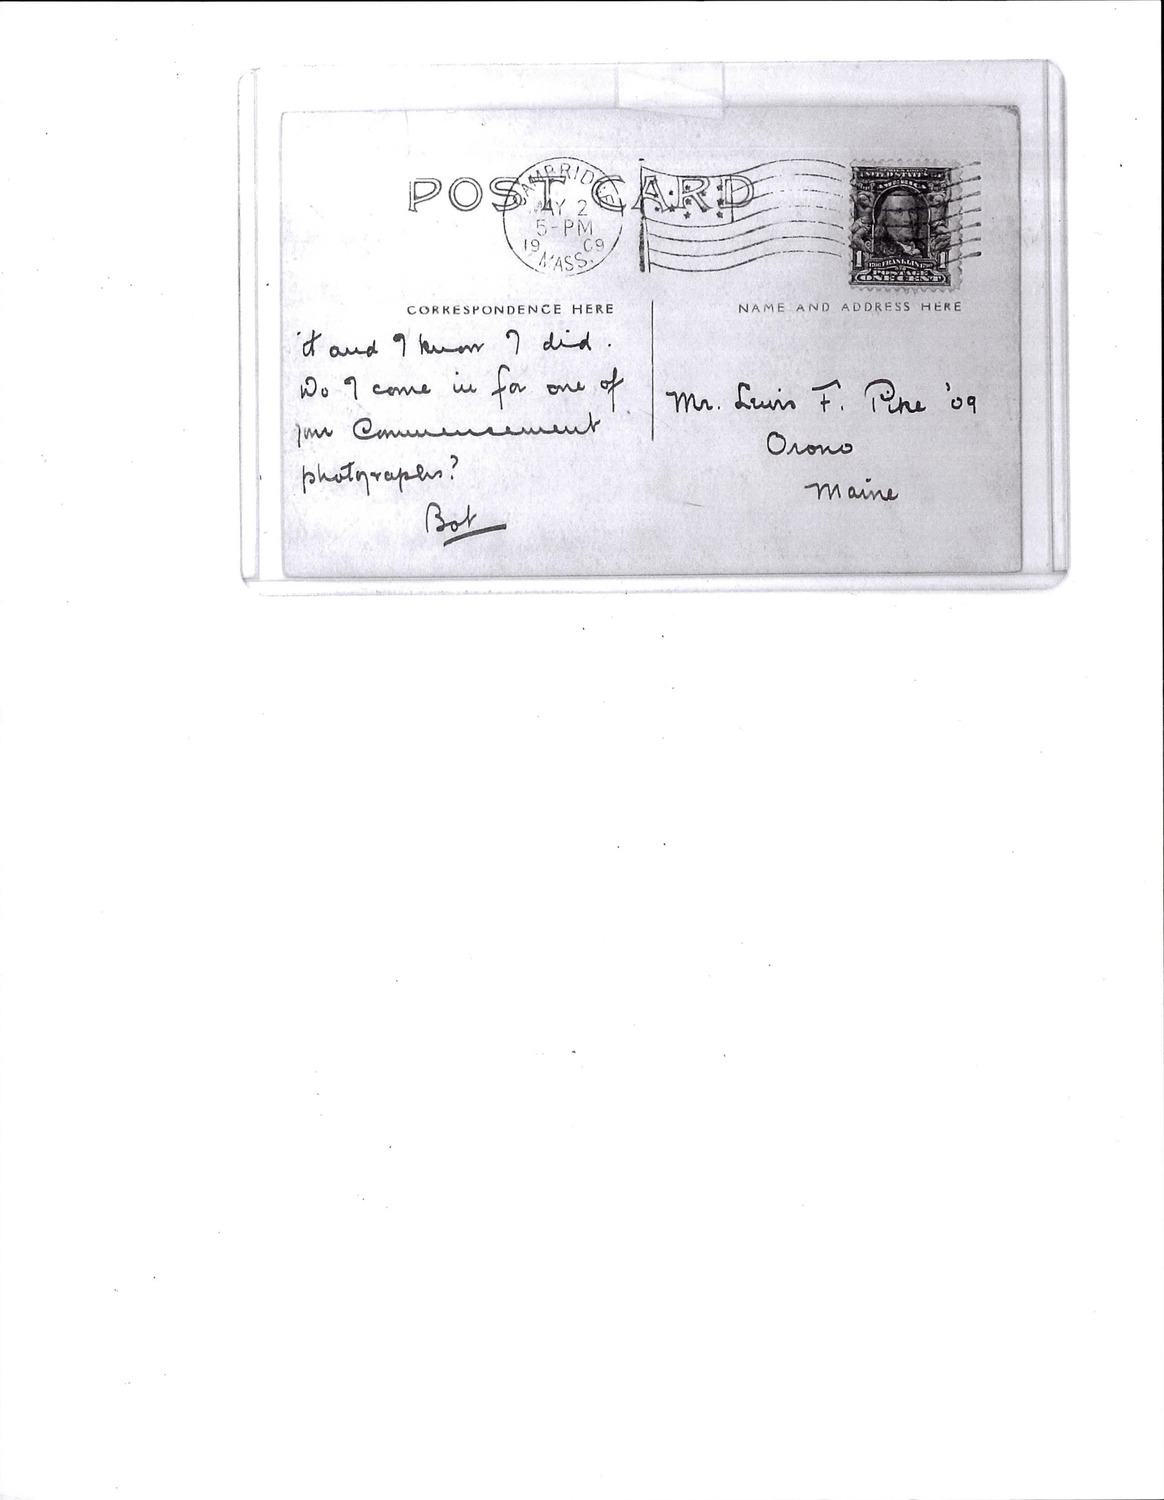 POST CARD
CAMBRIDGE
MAY 2
5-PM
1909
MASS.
UNITED STATES
AMERICA
1 FRANKLIN 1
POSTAGE
ONE CENT
CORRESPONDENCE HERE
NAME AND ADDRESS HERE
it and I know I did.
Do I come in for one of
your Commencement
photographs?
Bot
Mr. Lewis F. Pike '09
Orono
Maine